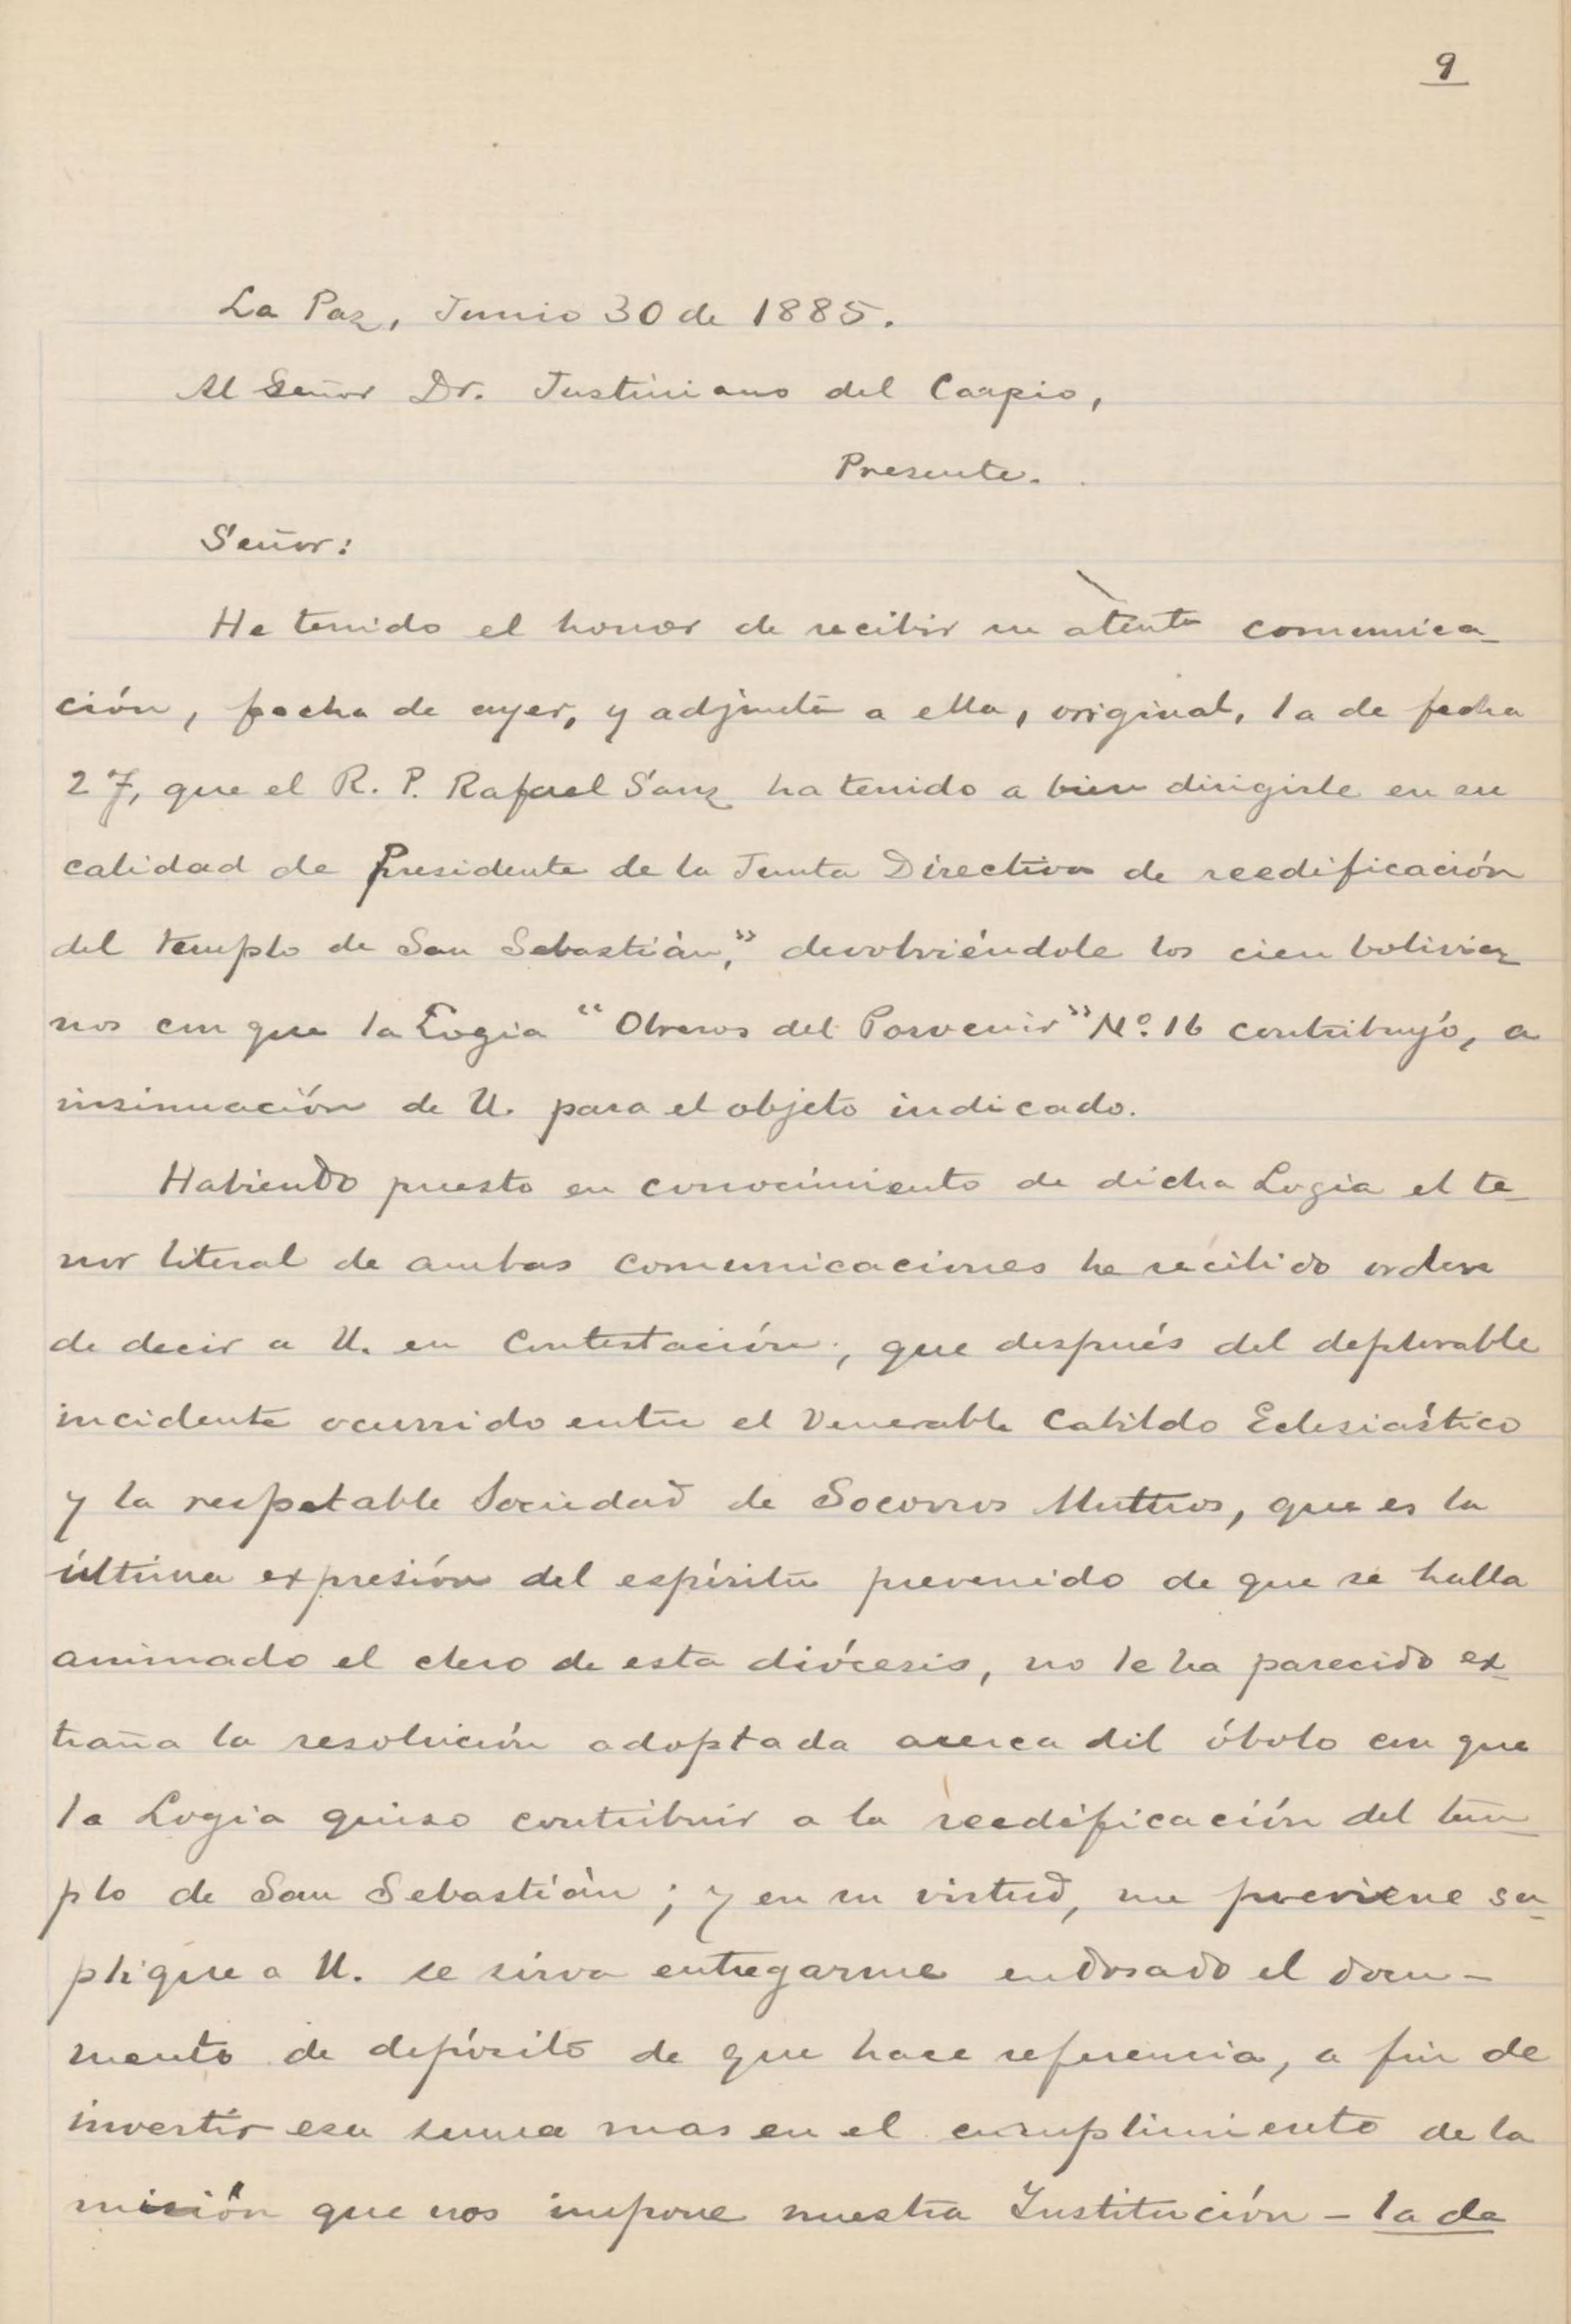 9
La Paz, Junio 30 de 1885.
Al Señor Dr. Justiniano del Carpio,
Presente.
Señor:
He tenido el honor de recibir su atenta comunica-
ción, fecha de ayer, y adjunta a ella, original, la de fecha
27, que el R. P. Rafael Sanz ha tenido a bien dirigirle en su
calidad de Presidente de la Junta Directiva de reedificación
del templo de San Sebastián," devolviéndole los cien bolivia-
nos con que la Logia "Obreros del Porvenir" Nº. 16 contribuyó, a
insinuación de U. para el objeto indicado.
Habiendo puesto en conocimiento de dicha Logia el te-
nor literal de ambas comunicaciones he recibido orden
de decir a U. en contestación, que después del deplorable
incidente ocurrido entre el Venerable Cabildo Eclesiástico
y la respetable Sociedad de Socorros Mutuos, que es la
última expresión del espíritu prevenido de que se halla
animado el clero de esta diócesis, no le ha parecido ex-
traña la resolución adoptada acerca del óbolo con que
la Logia quiso contribuir a la reedificación del tem-
plo de San Sebastián; y en su virtud, me previene su-
plique a U. se sirva entregarme endosado el docu-
mento de depósito de que hace referencia, a fin de
invertir esa suma mas en el cumplimiento de la
misión que nos impone nuestra Institución - la de